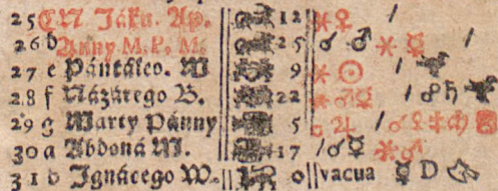 25 C N Jáku. Ap. 12 ⚹ ♀ /
26 d Anny M. P. M. 25 ☌ ♂ ⚹ ☿ /
27 e Pántáleo. M 9 ⚹ ☉ /
28 f Názárego B. 22 ⚹ ♂ ☿ / ☍ ♄
29 g Marty Pánny 5 ♃ / ☌ ♀
30 a Abdoná M. 17 / ☌ ☿ ⚹ ♂
31 b Ignácego W. 0 vacua ☿ D